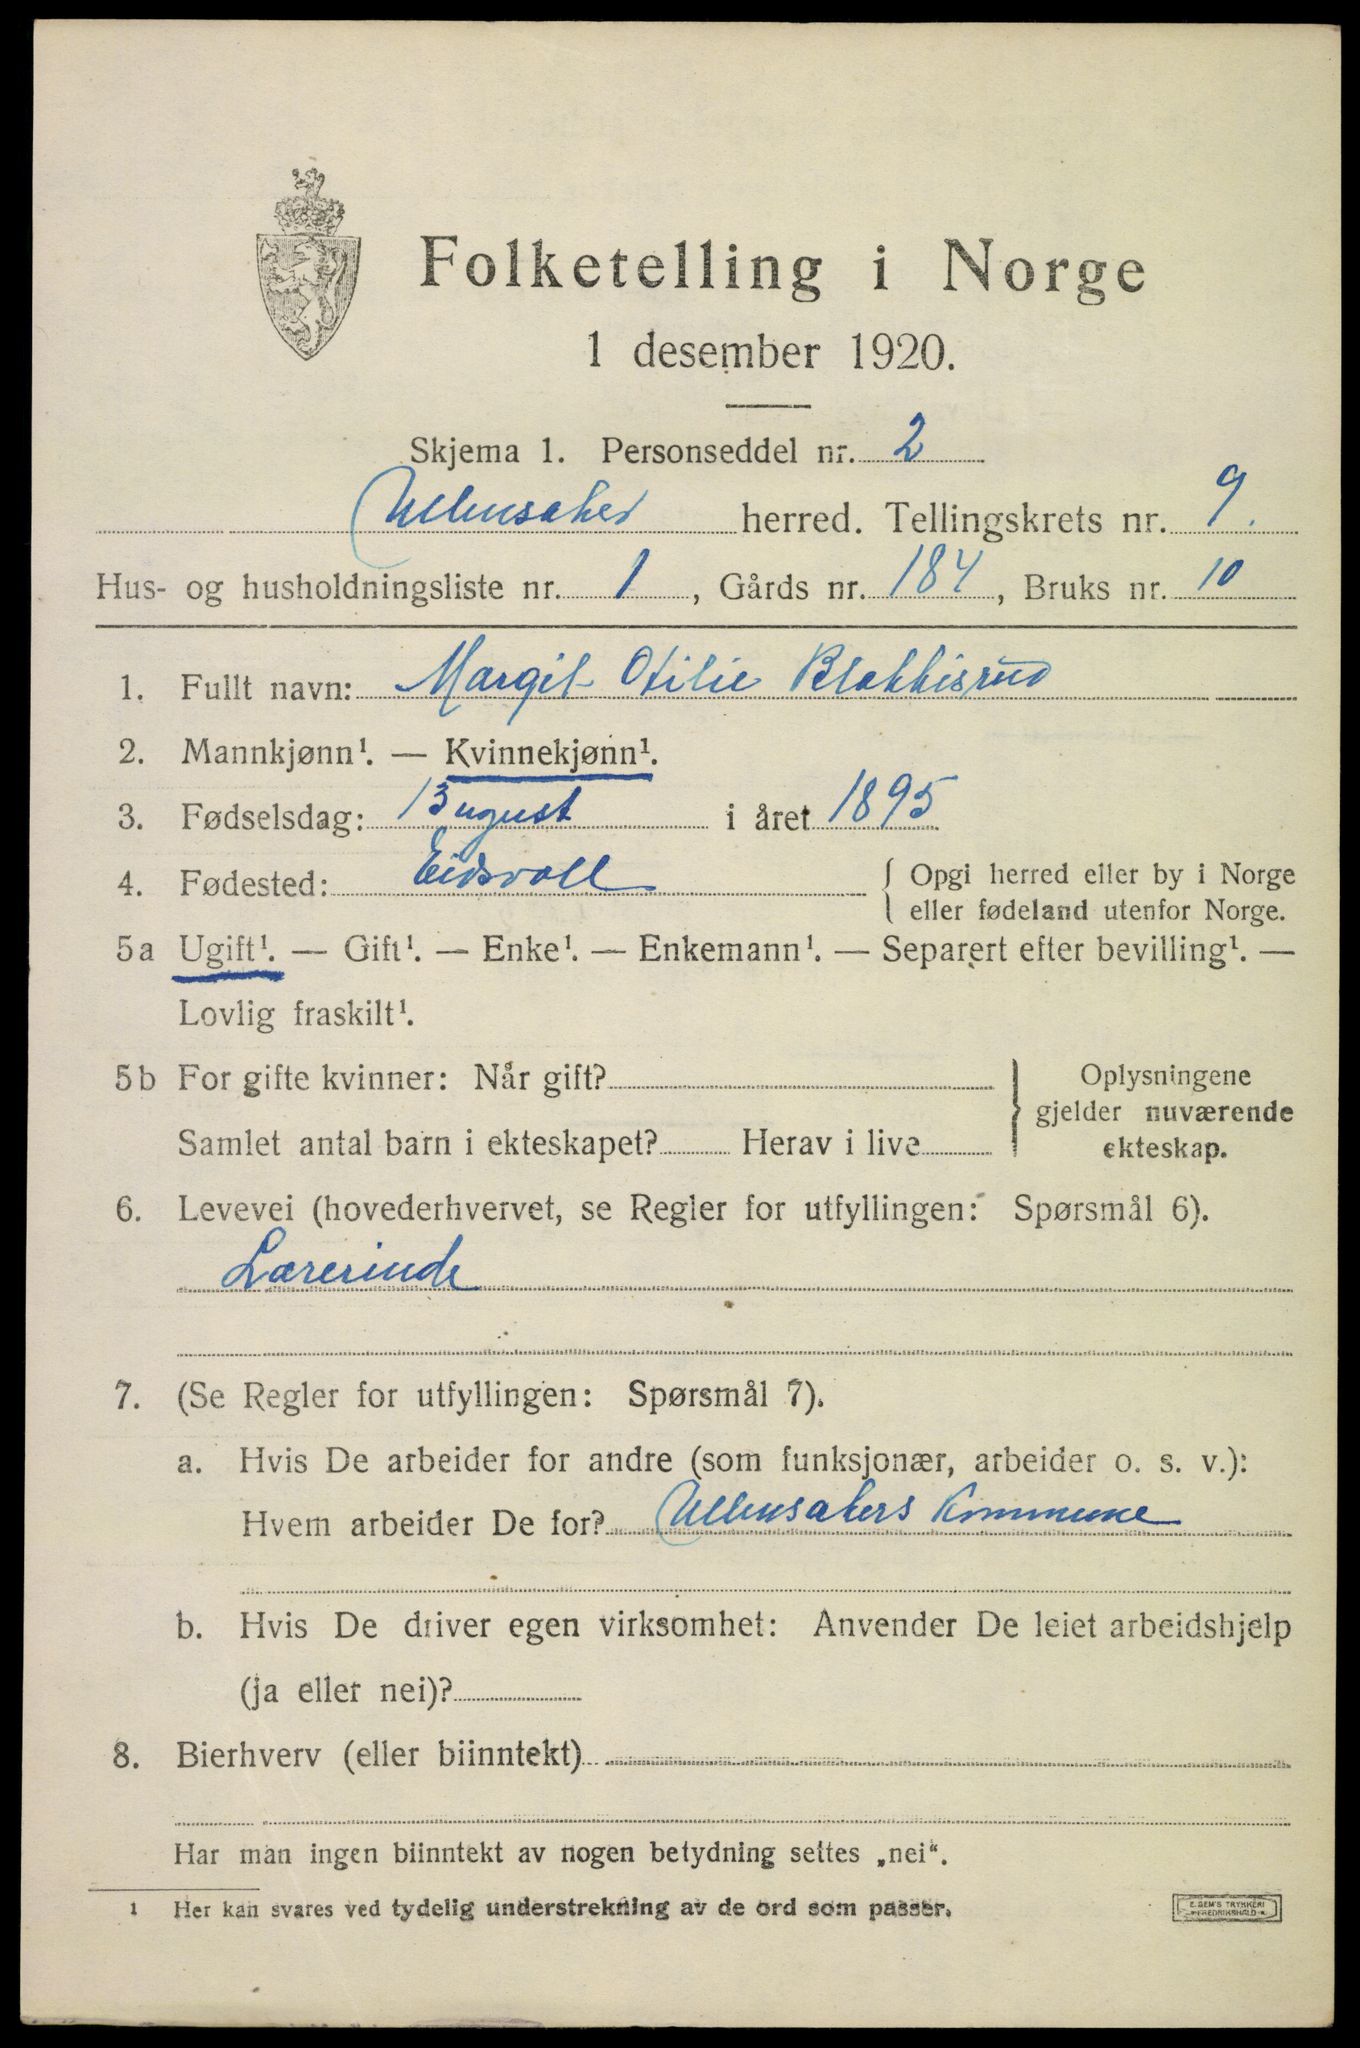 Folketelling i Norge
1 desember 1920.
Skjema 1. Personseddel nr. 2
Ullensaker herred. Tellingskrets nr. 9.
Hus- og husholdningsliste nr. 1, Gårds nr. 184, Bruks nr. 10
1. Fullt navn: Margit Otilie Blakkisrud
2. Mannkjønn¹. — Kvinnekjønn¹.
3. Fødselsdag: 13 ugust i året 1895
4. Fødested: Eidsvoll { Opgi herred eller by i Norge
eller fødeland utenfor Norge.
5a Ugift¹. — Gift¹. — Enke¹. — Enkemann¹. — Separert efter bevilling¹. —
Lovlig fraskilt¹.
5b For gifte kvinner: Når gift? } Oplysningene
gjelder nuværende
Samlet antal barn i ekteskapet? Herav i live ekteskap.
6. Levevei (hovederhvervet, se Regler for utfyllingen: Spørsmål 6).
Lærerinde
7. (Se Regler for utfyllingen: Spørsmål 7).
a. Hvis De arbeider for andre (som funksjonær, arbeider o. s. v.):
Hvem arbeider De for? Ullensakers Kommune
b. Hvis De driver egen virksomhet: Anvender De leiet arbeidshjelp
(ja eller nei)?
8. Bierhverv (eller biinntekt)
Har man ingen biinntekt av nogen betydning settes „nei“.
1 Her kan svares ved tydelig understrekning av de ord som passer.
E. SEM'S TRYKKERI
FREDRIKSHALD